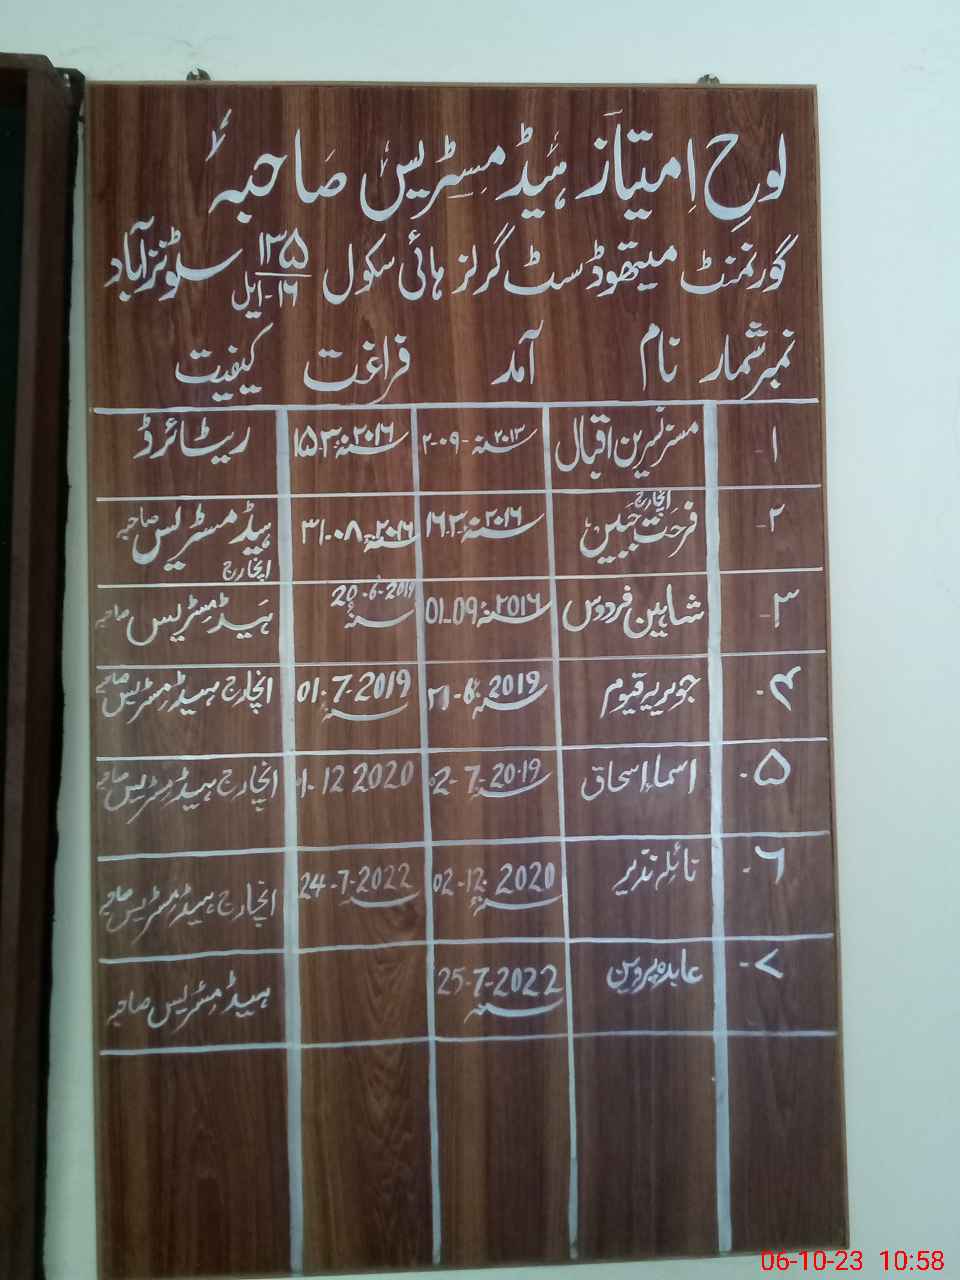 لوحِ اِمتیاز ہیڈ مسٹریس صاحبہ
گورنمنٹ میتھوڈسٹ گرلز ہائی سکول ۱۳۵/۱۶-ایل سٹونزآباد
نمبر شمار نام آمد فراغت کیفیت
۱- مسز نسرین اقبال ۲-۰۹-۲۰۱۳ ۱۵-۳-۲۰۱۶ ریٹائرڈ
۲- فرحت جبین انچارج ۱۶-۳-۲۰۱۶ ۳۱-۰۸-۲۰۱۶ ہیڈ مسٹریس صاحبہ انچارج
۳- شاہین فردوس 01-09-2016 20-6-2019 ہیڈ مسٹریس صاحبہ
۴- جویریہ قیوم 21-6-2019 01-7-2019 انچارج ہیڈ مسٹریس صاحبہ
۵- اسماء اسحاق 02-7-2019 1-12 2020 انچارج ہیڈ مسٹریس صاحبہ
۶- نائلہ نذیر 02-12-2020 24-7-2022 انچارج ہیڈ مسٹریس صاحبہ
۷- عابدہ پروین 25-7-2022 ہیڈ مسٹریس صاحبہ
06-10-23 10:58